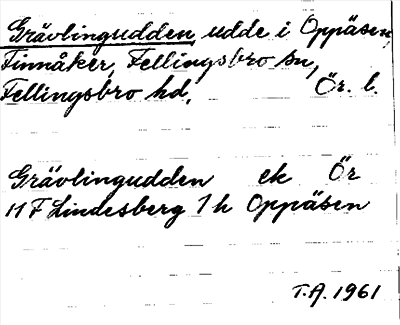 Grävlingudden, udde i Oppåsen,
Finnåker, Fellingsbro sn,
Fellingsbro hd, Ör. l.
Grävlingudden ek Ör
11 F Lindesberg 7 h Oppåsen
T.A. 1961